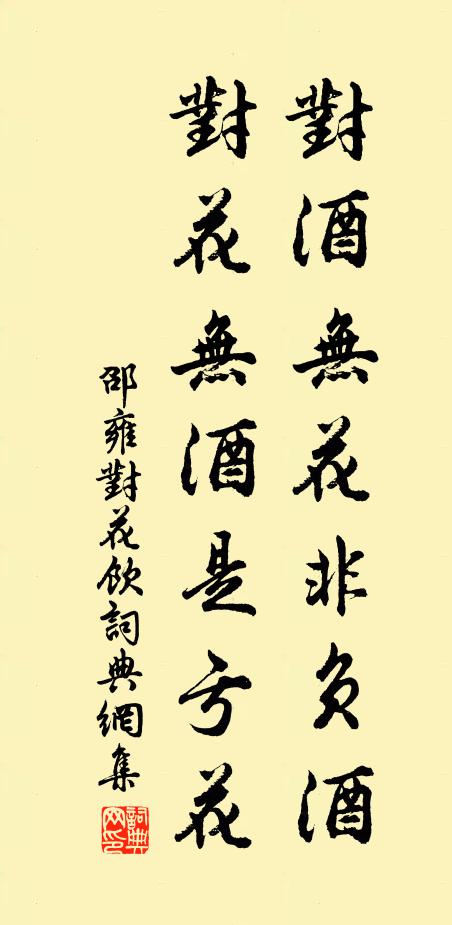 對酒無花非負酒
對花無酒是亏花
邵雍對花飲詞典網集
詞典网印